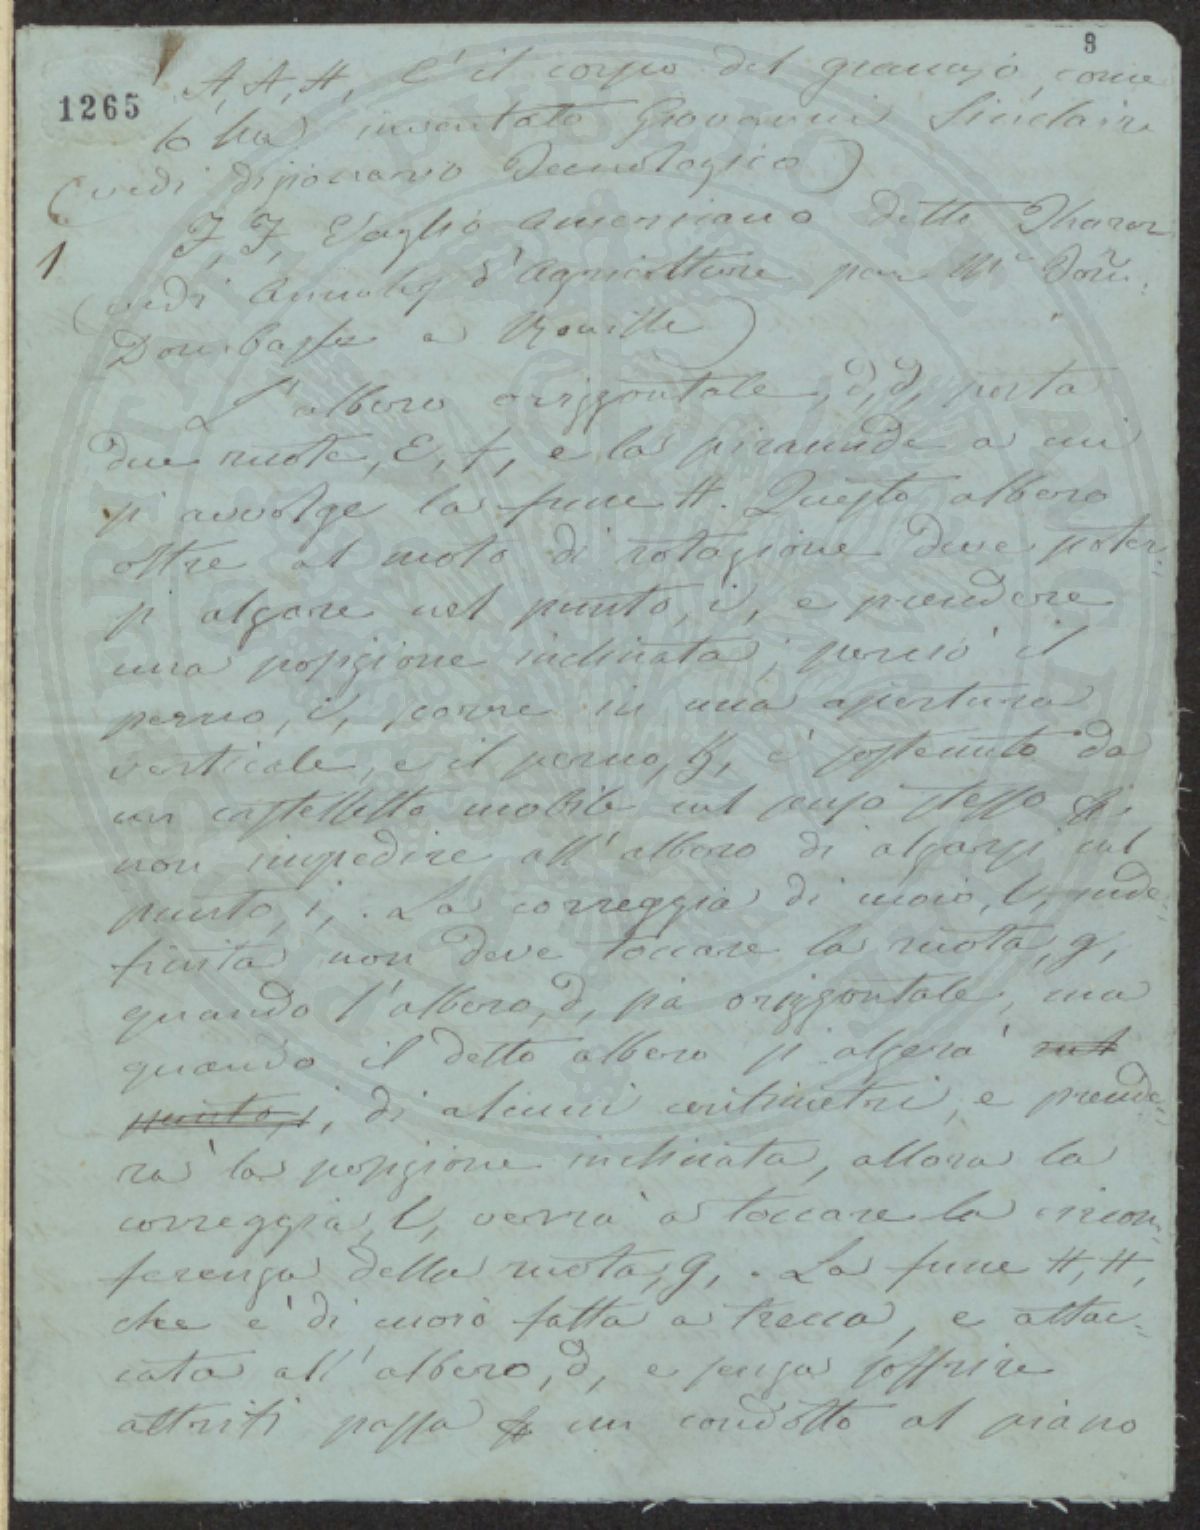 8
1265
A, A, A, E' il corpo del granajo, come
lo ha inventato Giovanni Sinclaire
(vedi dizionario Tecnologico)
1
J, J, Vaglio Americano detto
(vedi d'Agricolture par Mr
Dombasle a Roville)
L'albero orizzontale, d, d, porta
due ruote, E, f, e la piramide a cui
si avvolge la fune H. Questo albero
oltre al moto di rotazione deve poter-
si alzare nel punto, i, e prendere
una posizione inclinata; perciò il
perno, i, corre in una apertura
verticale, e il perno, K, è sostenuto da
un castelletto mobile sul senso stesso
non impedire all'albero di alzarsi sul
punto, i, . La correggia di cuoio, l, inde-
finita non deve toccare la ruota, g,
quando l'albero, d, sia orizzontale, ma
quando il detto albero si alzerà nel
punto, i, di alcuni centimetri, e prende-
rà la posizione inclinata, allora la
correggia, l, verrà a toccare la circon-
ferenza della ruota, g, . La fune H, H,
che è di cuoio fatta a trecca, e attac-
cata all'albero, d, e senza soffrire
attriti passa un condotto al piano
PUBLIC